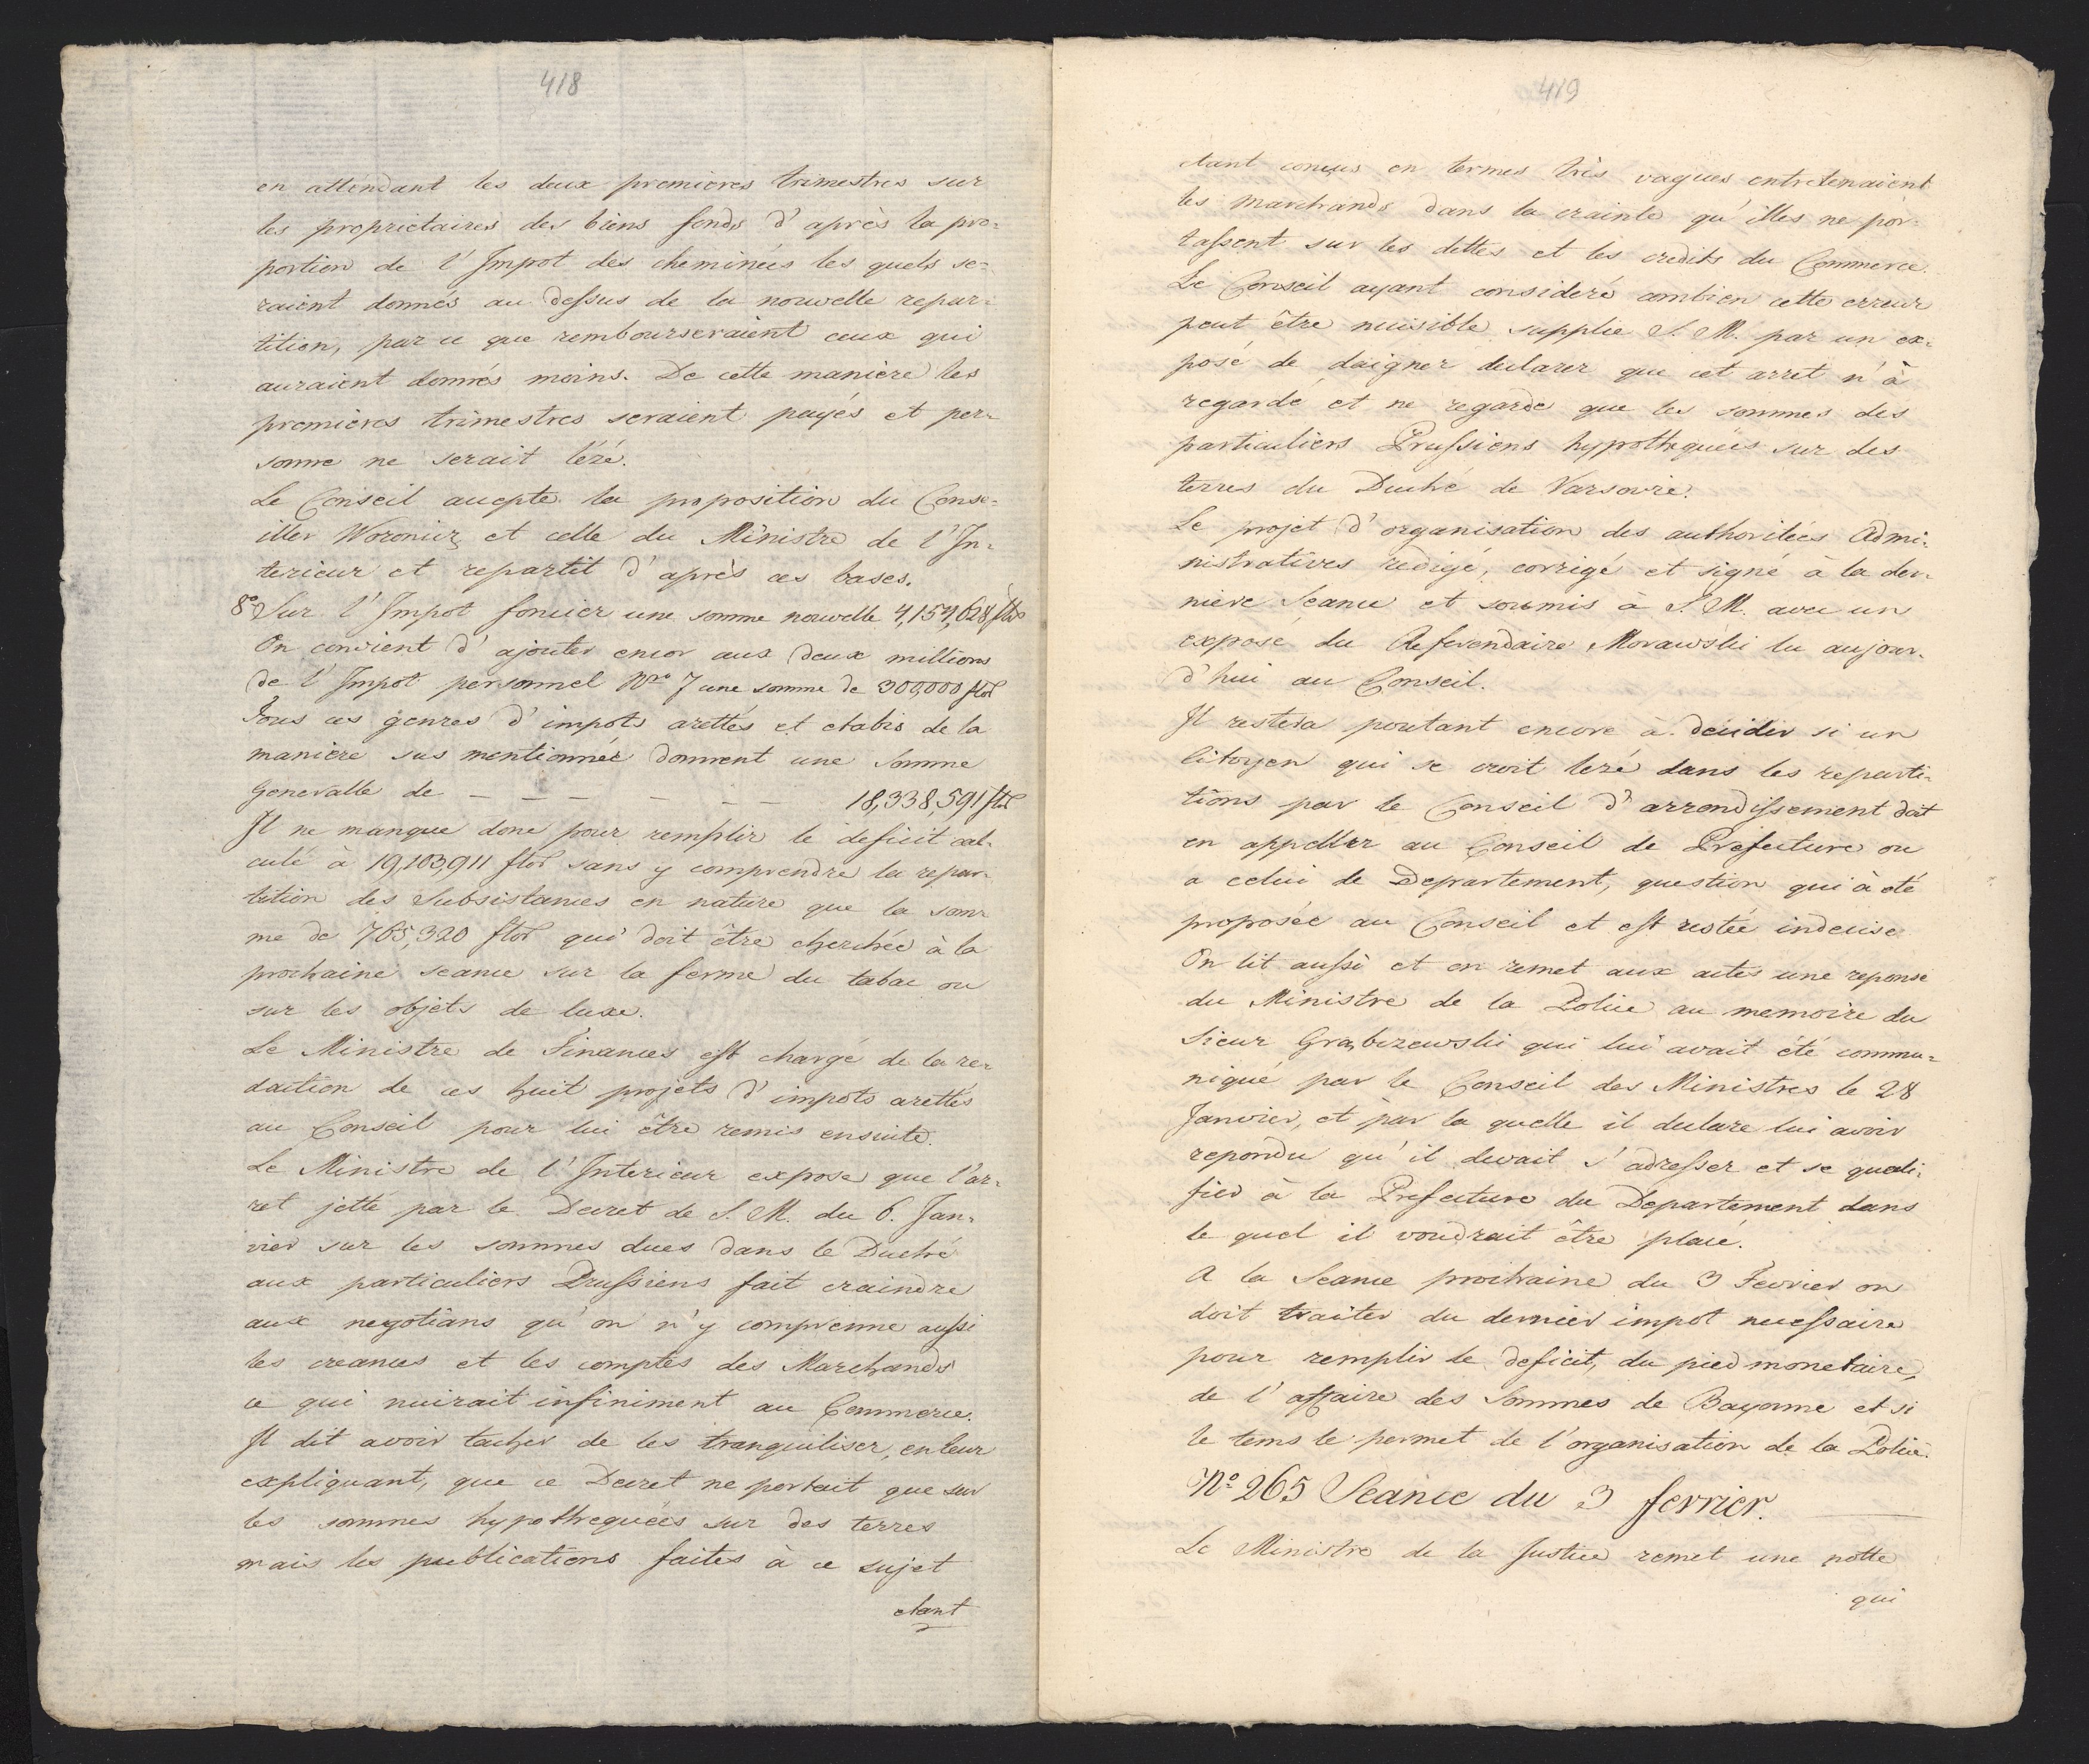 418
en attendant les deux premieres trimestres sur
les proprietaires des biens fonds d'après la pro-
portion de l'Impot des cheminées les quels se-
raient donnés au dessus de la nouvelle repar-
tition, par ce que rembourseraient ceux qui
auraient donnés moins. De cette manière les
premières trimestres seraient payés et per-
sonne ne serait lézé.
Le Conseil accepte la proposition du Conse-
iller Woronicz et celle du Ministre de l'In-
terieur et repartit d'après ces bases.
8° Sur l'Impot foncier une somme nouvelle 4,159,628 flor
On convient d'ajouter encor aux deux millions
de l'Impot personnel Nro 7 une somme de 300,000 flor
Tous ces genres d'impots arettés et etabis de la
manière sus mentionnée donnent une somme
Generalle de — — — — — — 18,338,591 flor
Il ne manque donc pour remplir le deficit cal-
culé à 19,103,911 flor sans y comprendre la repar-
tition des Subsistances en nature que la som-
me de 765,320 flor qui doit être cherchée à la
prochaine seance sur la ferme du tabac ou
sur les objets de luxe.
Le Ministre de Finances est chargé de la re-
daction de ces huit projets d'impots arettés
au Conseil pour lui être remis ensuite.
Le Ministre de l'Interieur expose que l'ar-
ret jetté par le Decret de S. M. du 6. Jan-
vier sur les sommes dues dans le Duché
aux particuliers Prussiens fait craindre
aux negotians qu'on n'y comprenne aussi
les creances et les comptes des Marchands
ce qui nuirait infiniment au Commerce.
Il dit avoir tacher de les tranquiliser, en leur
expliquant, que ce Decret ne portait que sur
les sommes hypothequées sur des terres
mais les publications faites à ce sujet
etant
419
etant conçus en termes très vagues entretenaient
les marchands dans la crainte qu'illes ne por-
tassent sur les dettes et les credits du Commerce.
Le Conseil ayant consideré combien cette erreur
peut être nuisible supplie S. M. par un ex-
posé de daigner declarer que cet arret n'à
regardé et ne regarde que les sommes des
particuliers Prussiens hypothequées sur des
terres du Duché de Varsovie.
Le projet d'organisation des authoritées Admi-
nistratives redigé, corrigé et signé à la der-
niere Seance et soumis à S. M. avec un
exposé du Referendaire Morawski lu aujour-
d'hui au Conseil.
Il restera poutant encore à decider si un
Citoyen qui se croit lezé dans les reparti-
tions par le Conseil d'arrondissement doit
en appeller au Conseil de Prefecture ou
a celui de Departement, question qui à eté
proposée au Conseil et est restée indecise
On lit aussi et on remet aux actes une reponse
du Ministre de la Police au memoire du
Sieur Grabczewski qui lui avait été commu-
niqué par le Conseil des Ministres le 28
Janvier, et par la quelle il declare lui avoir
repondu qu'il devait s'adresser et se quali-
fier à la Prefecture du Departement dans
le quel il voudrait être placé.
A la Seance prochaine du 3 Fevrier on
doit traiter du dernier impot necessaire
pour remplir le deficit, du pied monetaire,
de l'affaire des Sommes de Bayonne et si
le tems le permet de l'organisation de la Police.
N° 265 Seance du 3 fevrier.
Le Ministre de la Justice remet une notte
qui